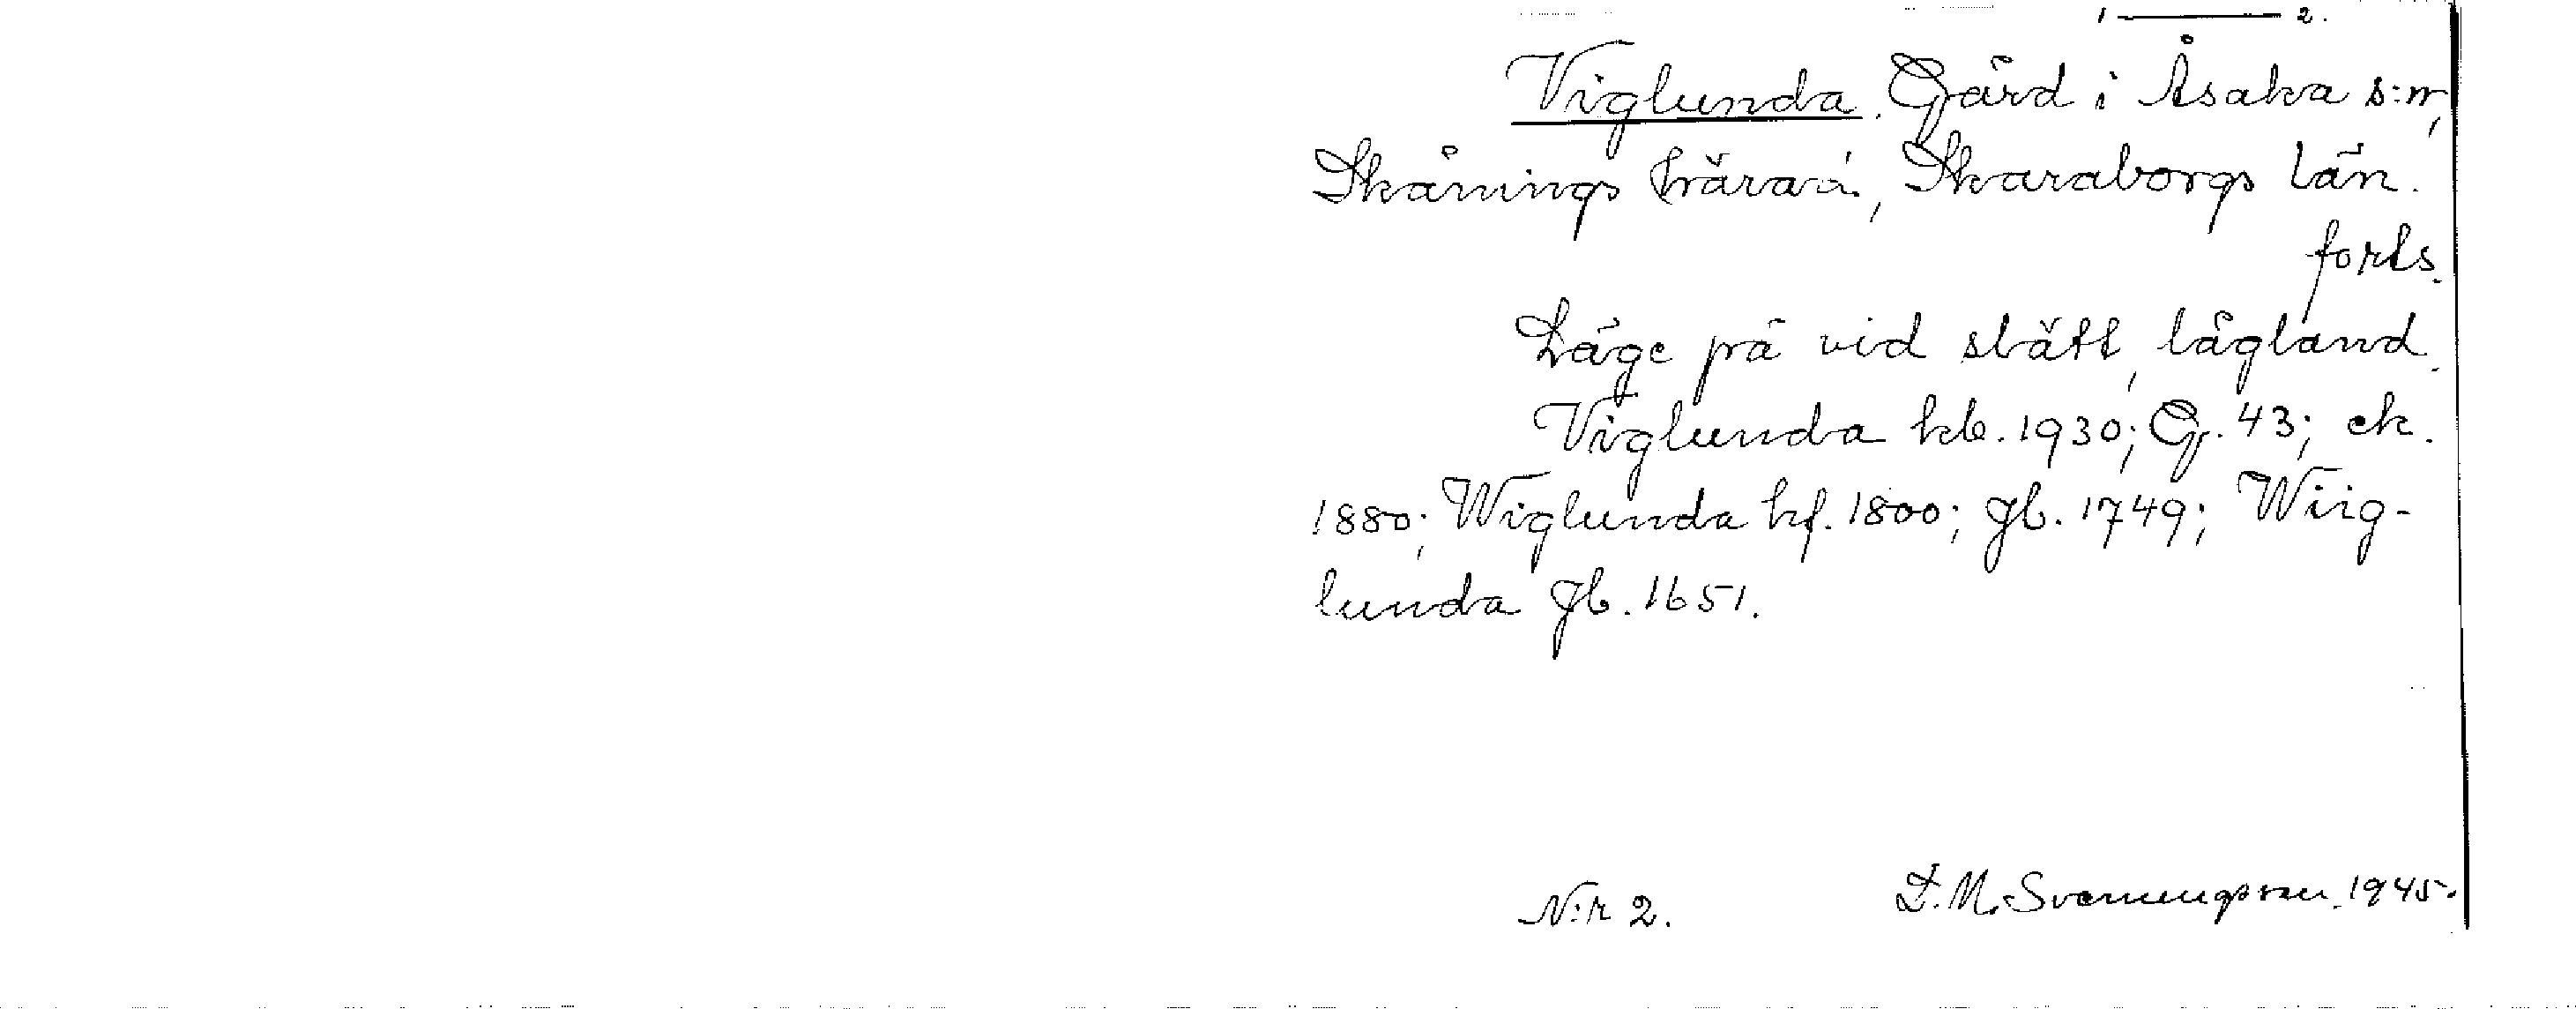 1 ——— 2.
Viglunda. Gård i Åsaka s:n,
Skånings härad, Skaraborgs län.
forts.
Läge på vid slätt, lågland.
Viglunda kb. 1930; Gr. 43; ek.
1880; Wiglunda hf. 1800; Jb. 1749; Wiig-
lunda Jb. 1651.
N:r 2.
L. M. Svenungsson. 1945.